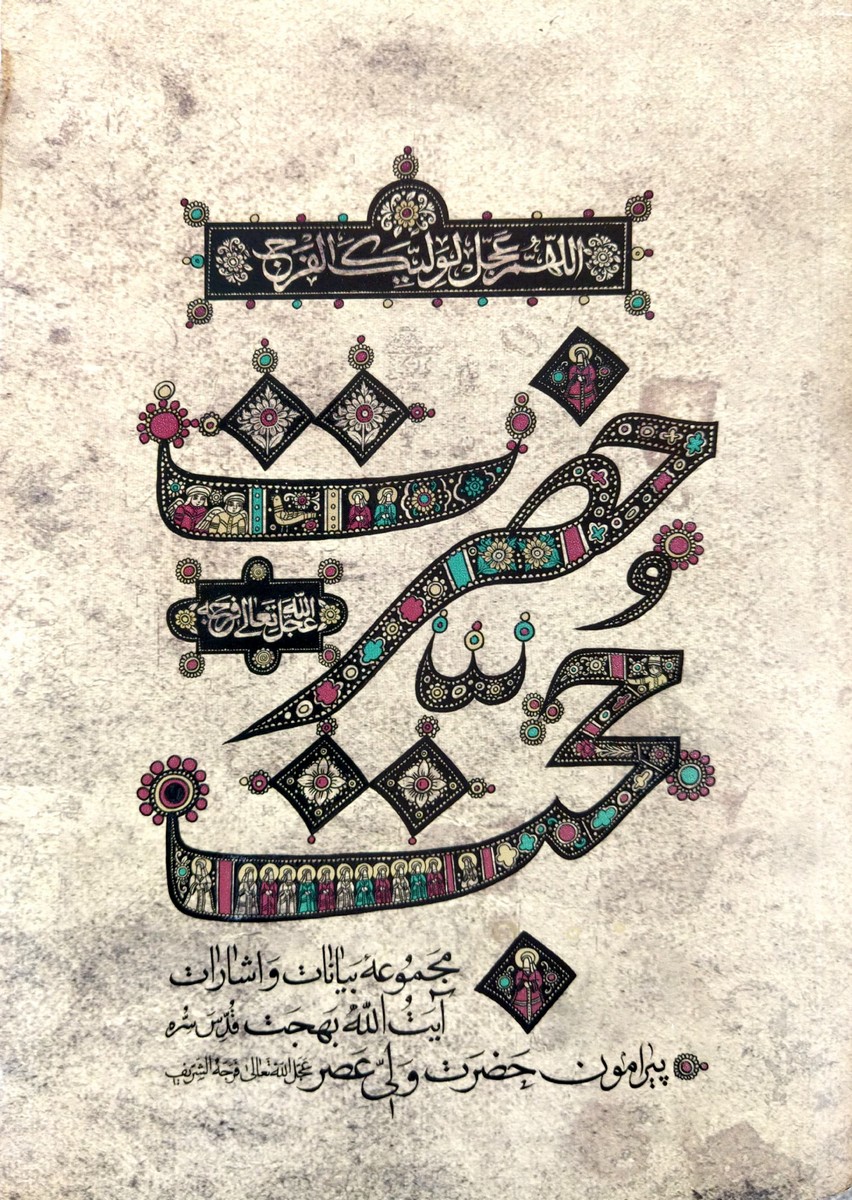 اللّهُمَّ عَجِّل لِوَلِیِّکَ الفَرَج
حضرت
عجل الله تعالی فرجه
حجت
مجموعه بیانات و اشارات
آیت الله بهجت قدّس سّره
پیرامون حضرت ولیّ عصر عجل الله تعالی فرجه الشریف